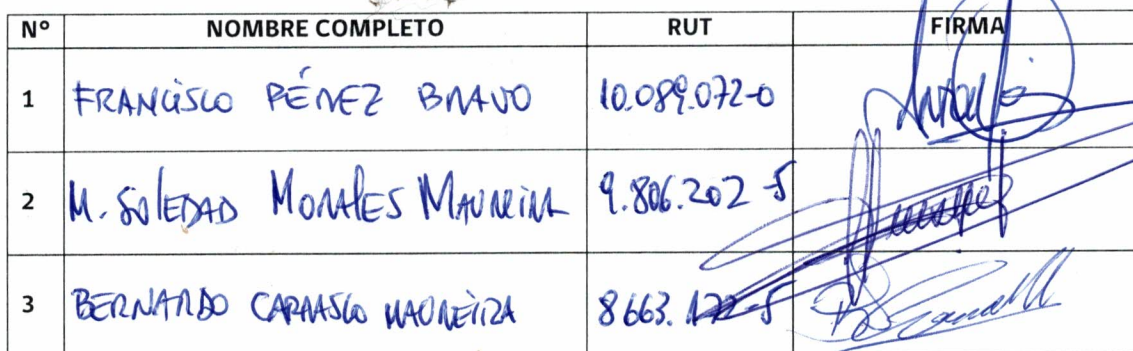 Nº NOMBRE COMPLETO RUT FIRMA
1 FRANCISCO PÉREZ BRAVO 10.089.072-0
2 M. SOLEDAD MORALES MAUREIRA 9.806.202-5
3 BERNARDO CARRASCO MAUREIRA 8663.122-5